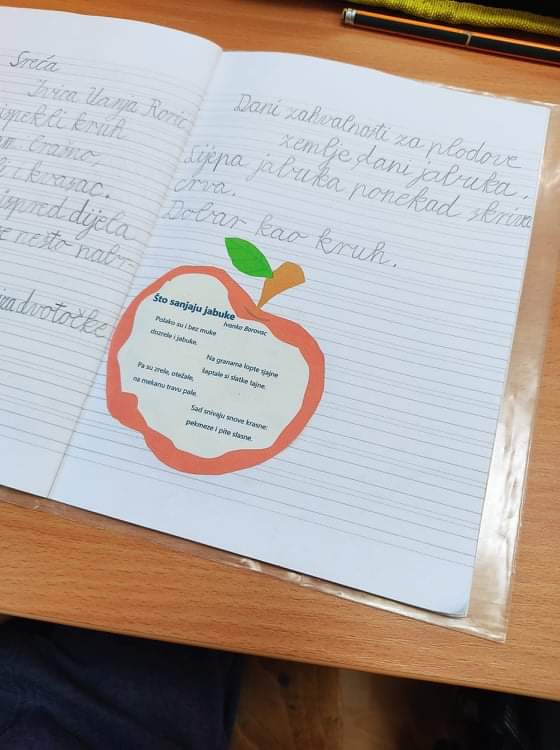 Sreća
Ivica Vanja Rorić
ispekli kruh
brašno,
i kvasac.
ispred dijela
nešto nabr
dvotočke
Dani zahvalnosti za plodove
zemlje, dani jabuka.
Lijepa jabuka ponekad skriva
crva.
Dobar kao kruh.
Što sanjaju jabuke
Ivanka Borovac
Polako su i bez muke
dozrele i jabuke.
Na granama lopte sjajne
šaptale si slatke tajne.
Pa su zrele, otežale,
na mekanu travu pale.
Sad snivaju snove krasne:
pekmeze i pite slasne.